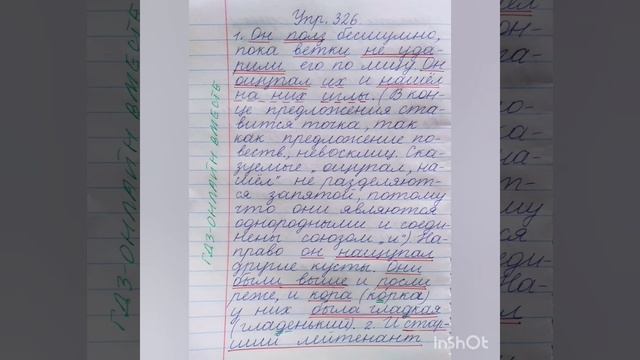 Упр. 326.
1. Он полз бесшумно,
пока ветки не уда-
рили его по лицу. Он
ощупал их и нашёл
на них иглы. (В кон-
це предложения ста-
вится точка, так
как предложение по-
веств., невосклиц. Ска-
зуемые „ощупал, на-
шёл" не разделяют-
ся запятой, потому
что они являются
однородными и соеди-
нены союзом „и".) На-
право он нащупал
другие кусты. Они
были выше и росли
реже, и кора (корка)
у них была гладкая
(гладенький). 2. И стар-
ший лейтенант
ГДЗ-ОНЛАЙН ВМЕСТЕ
InShOt